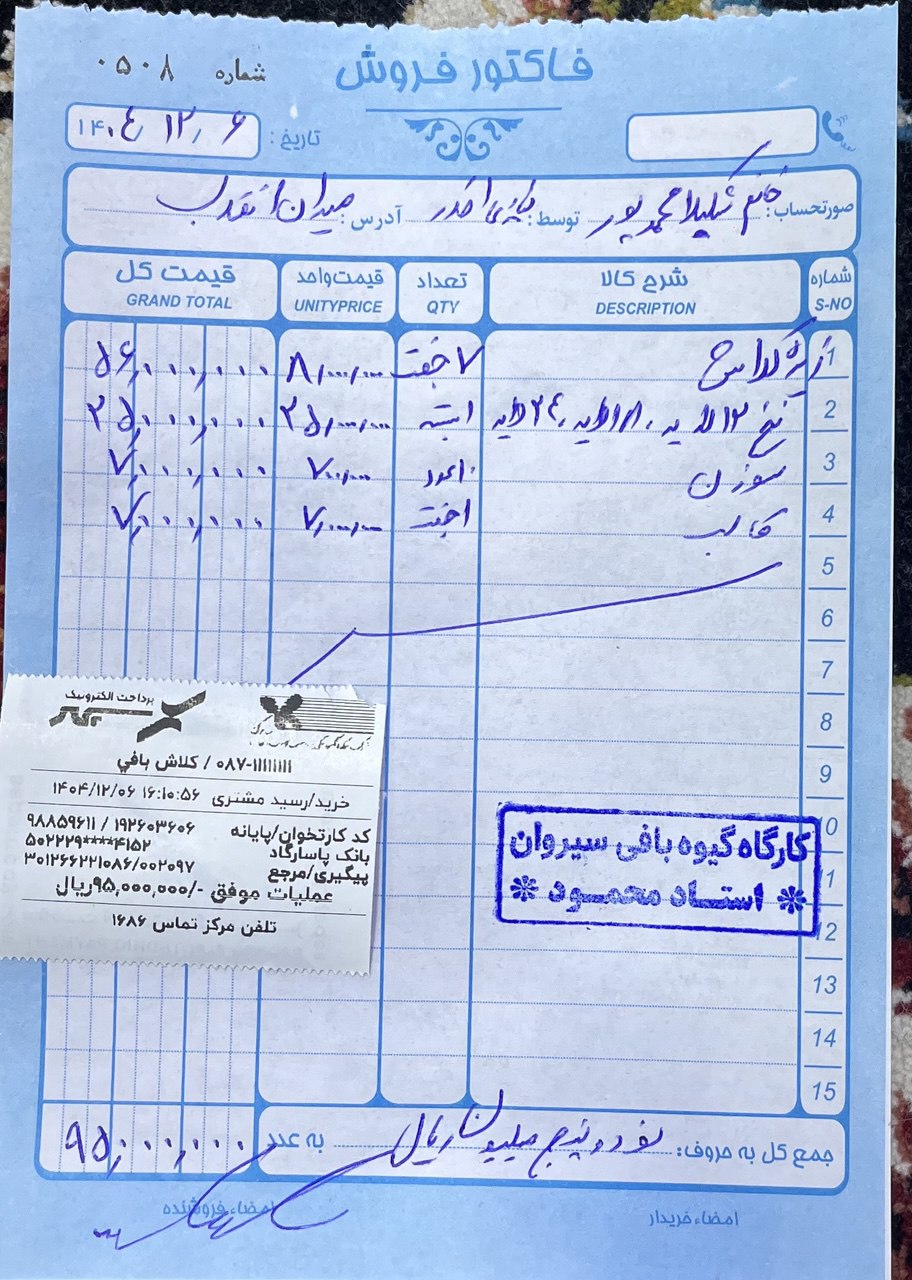 فاکتور فروش
شماره ۰۵۰۸
تاریخ: ۱۴۰۴/۱۲/۶
صورتحساب: خانم شکیلا محمدپور توسط: آدرس: میدان انقلاب
شماره شرح کالا تعداد قیمت واحد قیمت کل
S-NO DESCRIPTION QTY UNITYPRICE GRAND TOTAL
1 زیره کلاش ۷ جفت ۸/۰۰۰/۰۰۰ ۵۶/۰۰۰/۰۰۰
2 نخ ۱۲ لایه، ۱۸ لایه، ۲۴ لایه ۱ بسته ۲۵/۰۰۰/۰۰۰ ۲۵/۰۰۰/۰۰۰
3 سوزن ۱۰ عدد ۷۰۰/۰۰۰ ۷/۰۰۰/۰۰۰
4 قالب ۱ جفت ۷/۰۰۰/۰۰۰ ۷/۰۰۰/۰۰۰
5
6
7
8
9
10
11
12
13
14
15
پرداخت الکترونیک
۰۸۷-۱۱۱۱۱۱۱۱ / کلاش بافي
خرید/رسید مشتری ۱۴۰۴/۱۲/۰۶ ۱۶:۱۰:۵۶
کد کارتخوان/پایانه ۱۹۲۶۰۳۶۰۶ / ۹۸۸۵۹۶۱۱
بانک پاسارگاد ۵۰۲۲۲۹****۴۱۵۲
پیگیری/مرجع ۳۰۱۲۶۶۲۲۱۰۸۶/۰۰۲۰۹۷
عملیات موفق -/۹۵,۰۰۰,۰۰۰ریال
تلفن مرکز تماس ۱۶۸۶
کارگاه گیوه بافی سیروان
* استاد محمود *
جمع کل به حروف: نود و پنج میلیون ریال به عدد ۹۵/۰۰۰/۰۰۰
امضاء خریدار امضاء فروشنده